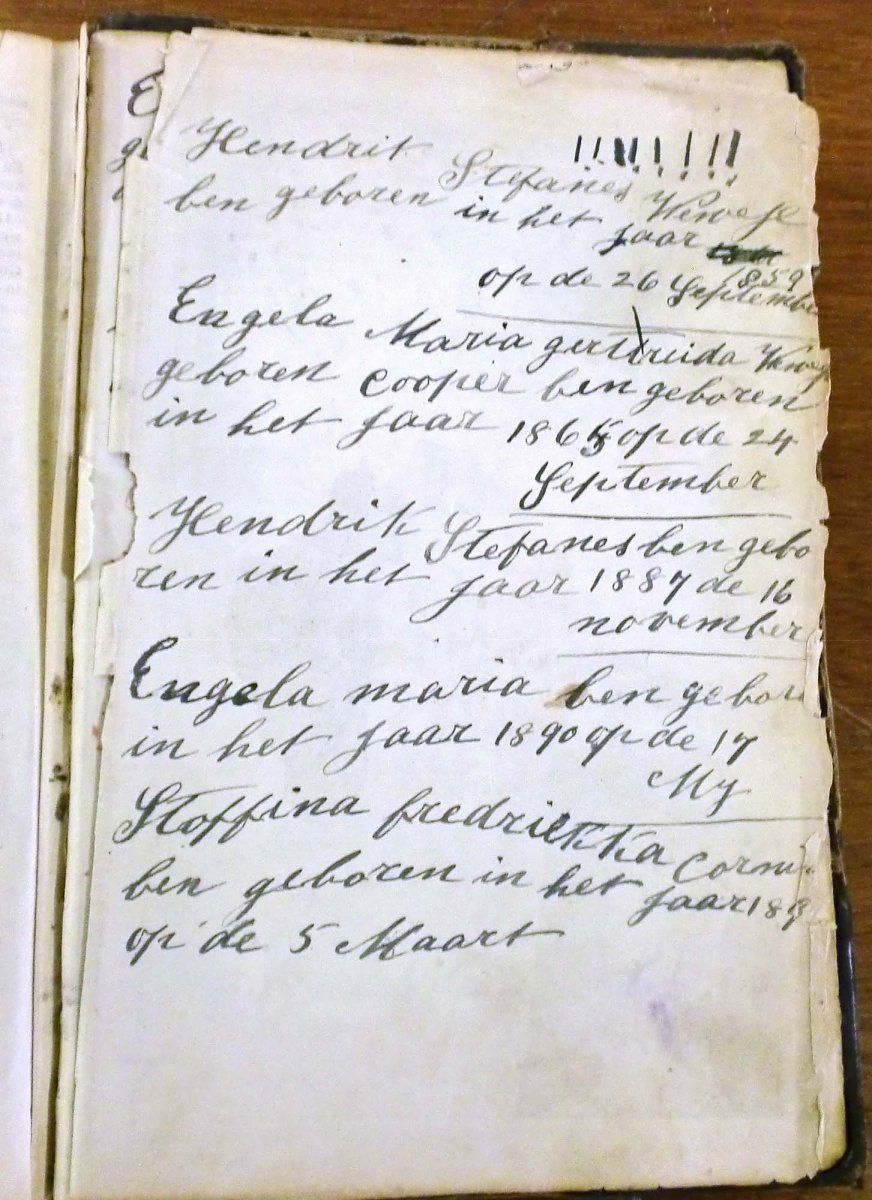 Hendrik Stefanes Wewege
ben geboren in het jaar
1859
op de 26 September
Engela Maria gertruida
geboren Cooper ben geboren
in het jaar 1865 op de 24
September
Hendrik Stefanes ben gebo
ren in het jaar 1887 de 16
november
Engela maria ben gebor
in het jaar 1890 op de 17
My
Stoffina fredriekka
ben geboren in het jaar
op de 5 Maart